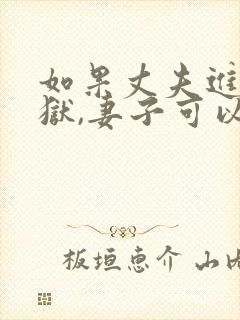 如果丈夫進
獄,妻子可以
板垣恵介 山内